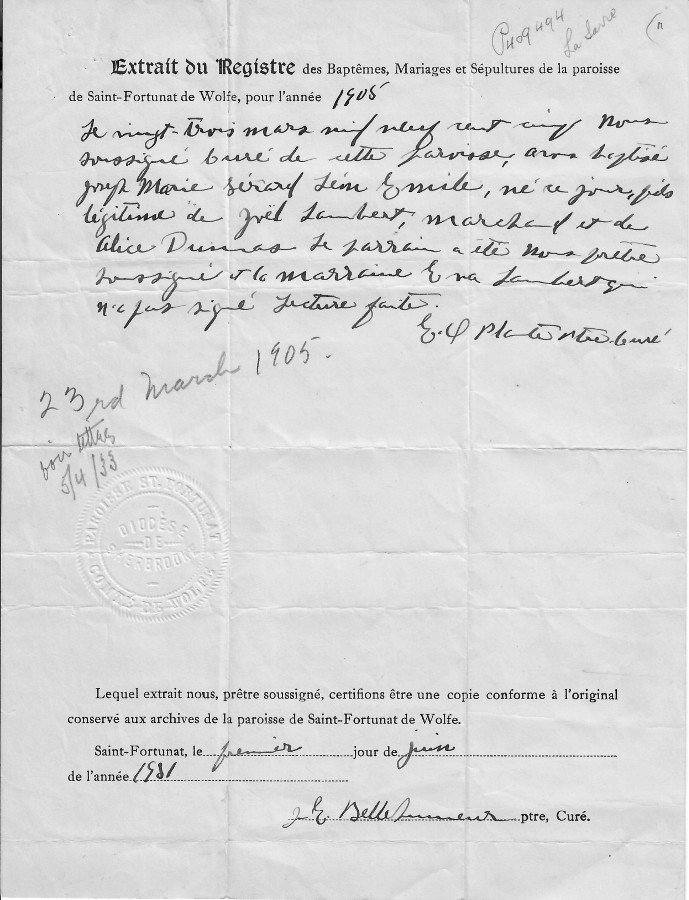 P409494
La Sarre
Extrait du Registre des Baptêmes, Mariages et Sépultures de la paroisse
de Saint-Fortunat de Wolfe, pour l'année 1905
Le vingt-trois mars mil neuf cent cinq Nous
soussigné curé de cette paroisse, avons baptisé
Joseph Marie Gérard Léon Emile, né ce jour, fils
légitime de Joël Lambert, marchand et de
Alice Dumas Le parrain a été Nous prêtre
soussigné et la marraine Eva Lambert qui
n'a pas signé Lecture faite.
E. Plante Ptre curé
23rd March 1905.
voir lettres
5/4/33
PAROISSE ST. FORTUNAT
COMTÉ DE WOLFE
DIOCÈSE
DE
SHERBROOKE
Lequel extrait nous, prêtre soussigné, certifions être une copie conforme à l'original
conservé aux archives de la paroisse de Saint-Fortunat de Wolfe.
Saint-Fortunat, le premier jour de juin
de l'année 1931
J. E. Bellehumeur ptre, Curé.